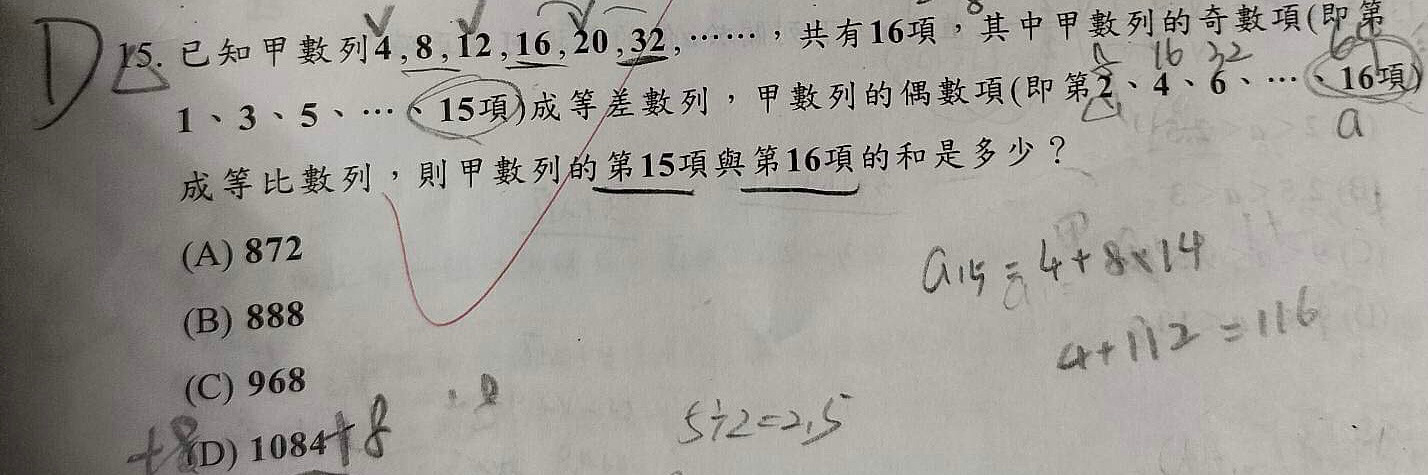 D 15. 已知甲數列4,8,12,16,20,32,……,共有16項,其中甲數列的奇數項(即第
16 32
1、3、5、…、15項)成等差數列,甲數列的偶數項(即第2、4、6、…、16項)
a
成等比數列,則甲數列的第15項與第16項的和是多少?
(A) 872
a15 = 4+8×14
(B) 888
4+112=116
(C) 968
+8 (D) 1084 +8
5÷2=2.5